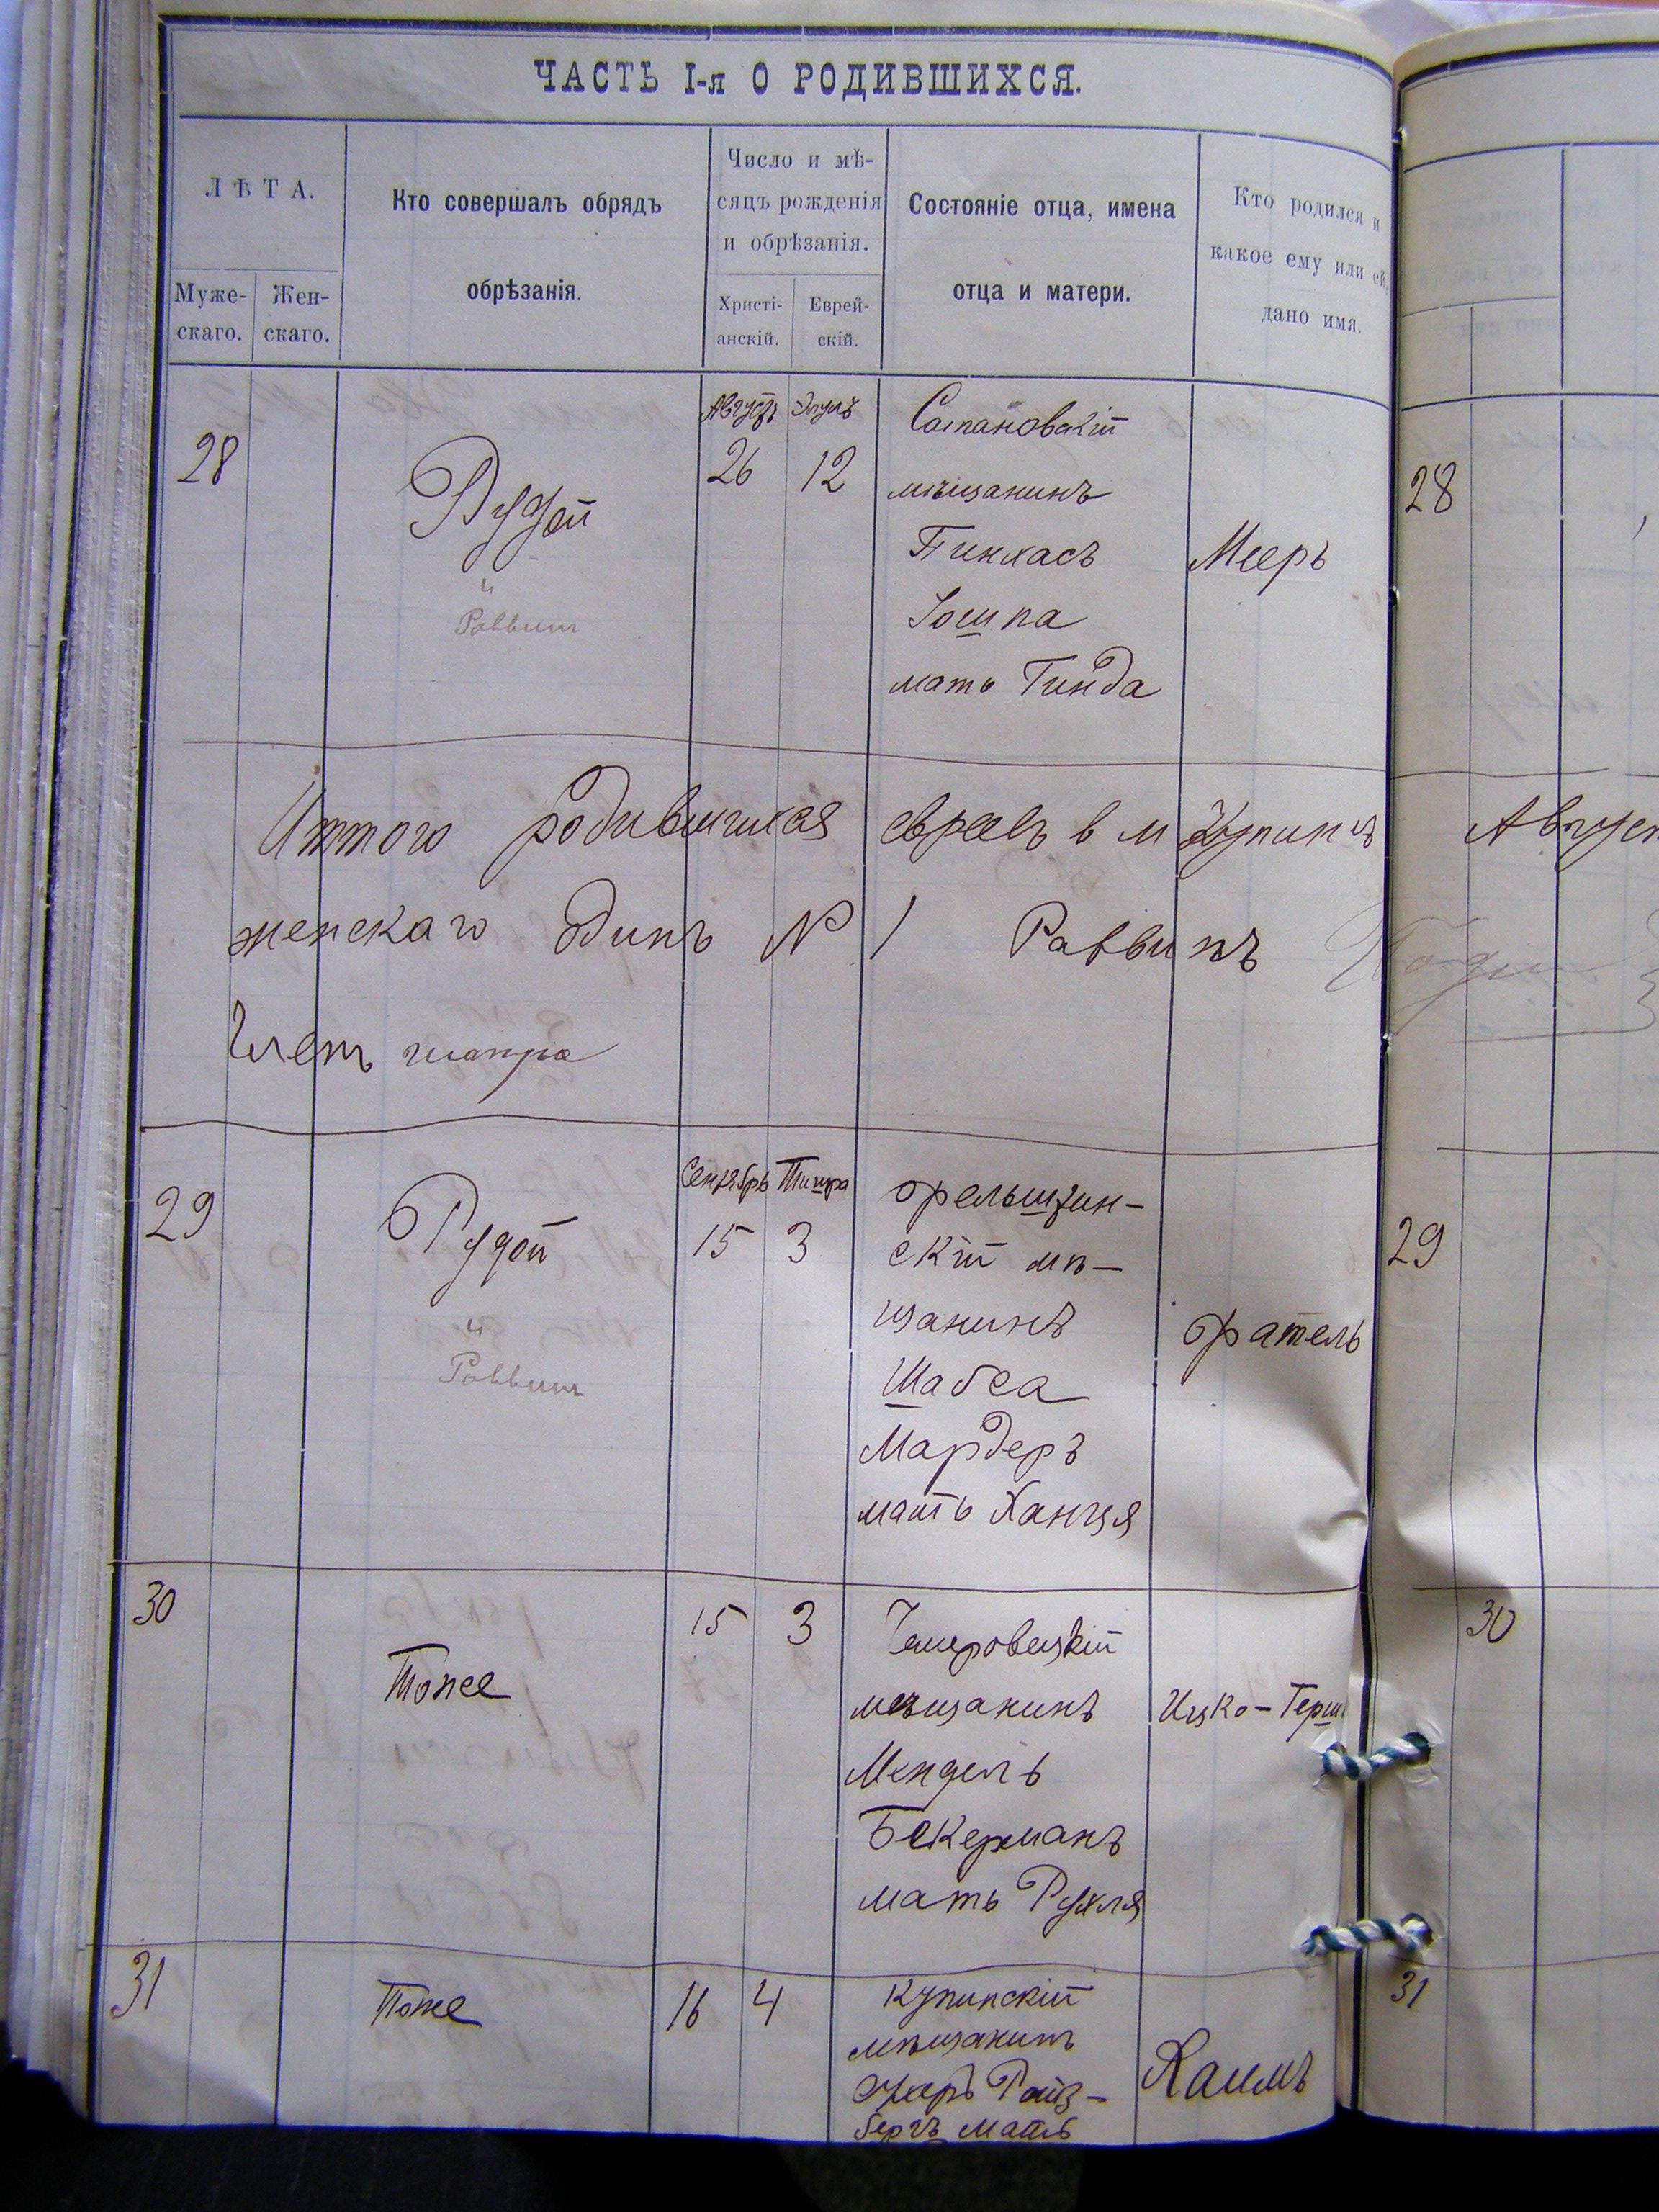 ЧАСТЬ I-я О РОДИВШИХСЯ.
ЛѢТА.
Муже-
скаго.
Жен-
скаго.
Кто совершалъ обрядъ
обрѣзанія.
Число и мѣ-
сяцъ рожденія
и обрѣзанія.
Христі-
анскій.
Еврей-
скій.
Состояніе отца, имена
отца и матери.
Кто родился и
какое ему или ей
дано имя.
28
Рудой
и
Раввинъ
Августъ Элулъ
26 12
Сатановскій
мѣщанинъ
Пинхасъ
мать Гинда
Мееръ
28
Иттого родившихся евреевъ в м Купинъ
женскаго одинъ № 1 Раввинъ
Членъ
29
Рудой
и
Раввинъ
Сентябрь Тишра
15 3
скій мѣ-
щанинъ
Шабса
Мардеръ
мать Ханця
29
30
Тоже
15 3
Чемровецкій
мѣщанинъ
Мендель
Бекерманъ
мать Рухля
Ицко-Герш
30
31
Тоже
16 4
Купинскій
мѣщанинъ
бергъ мать
Хаимъ
31